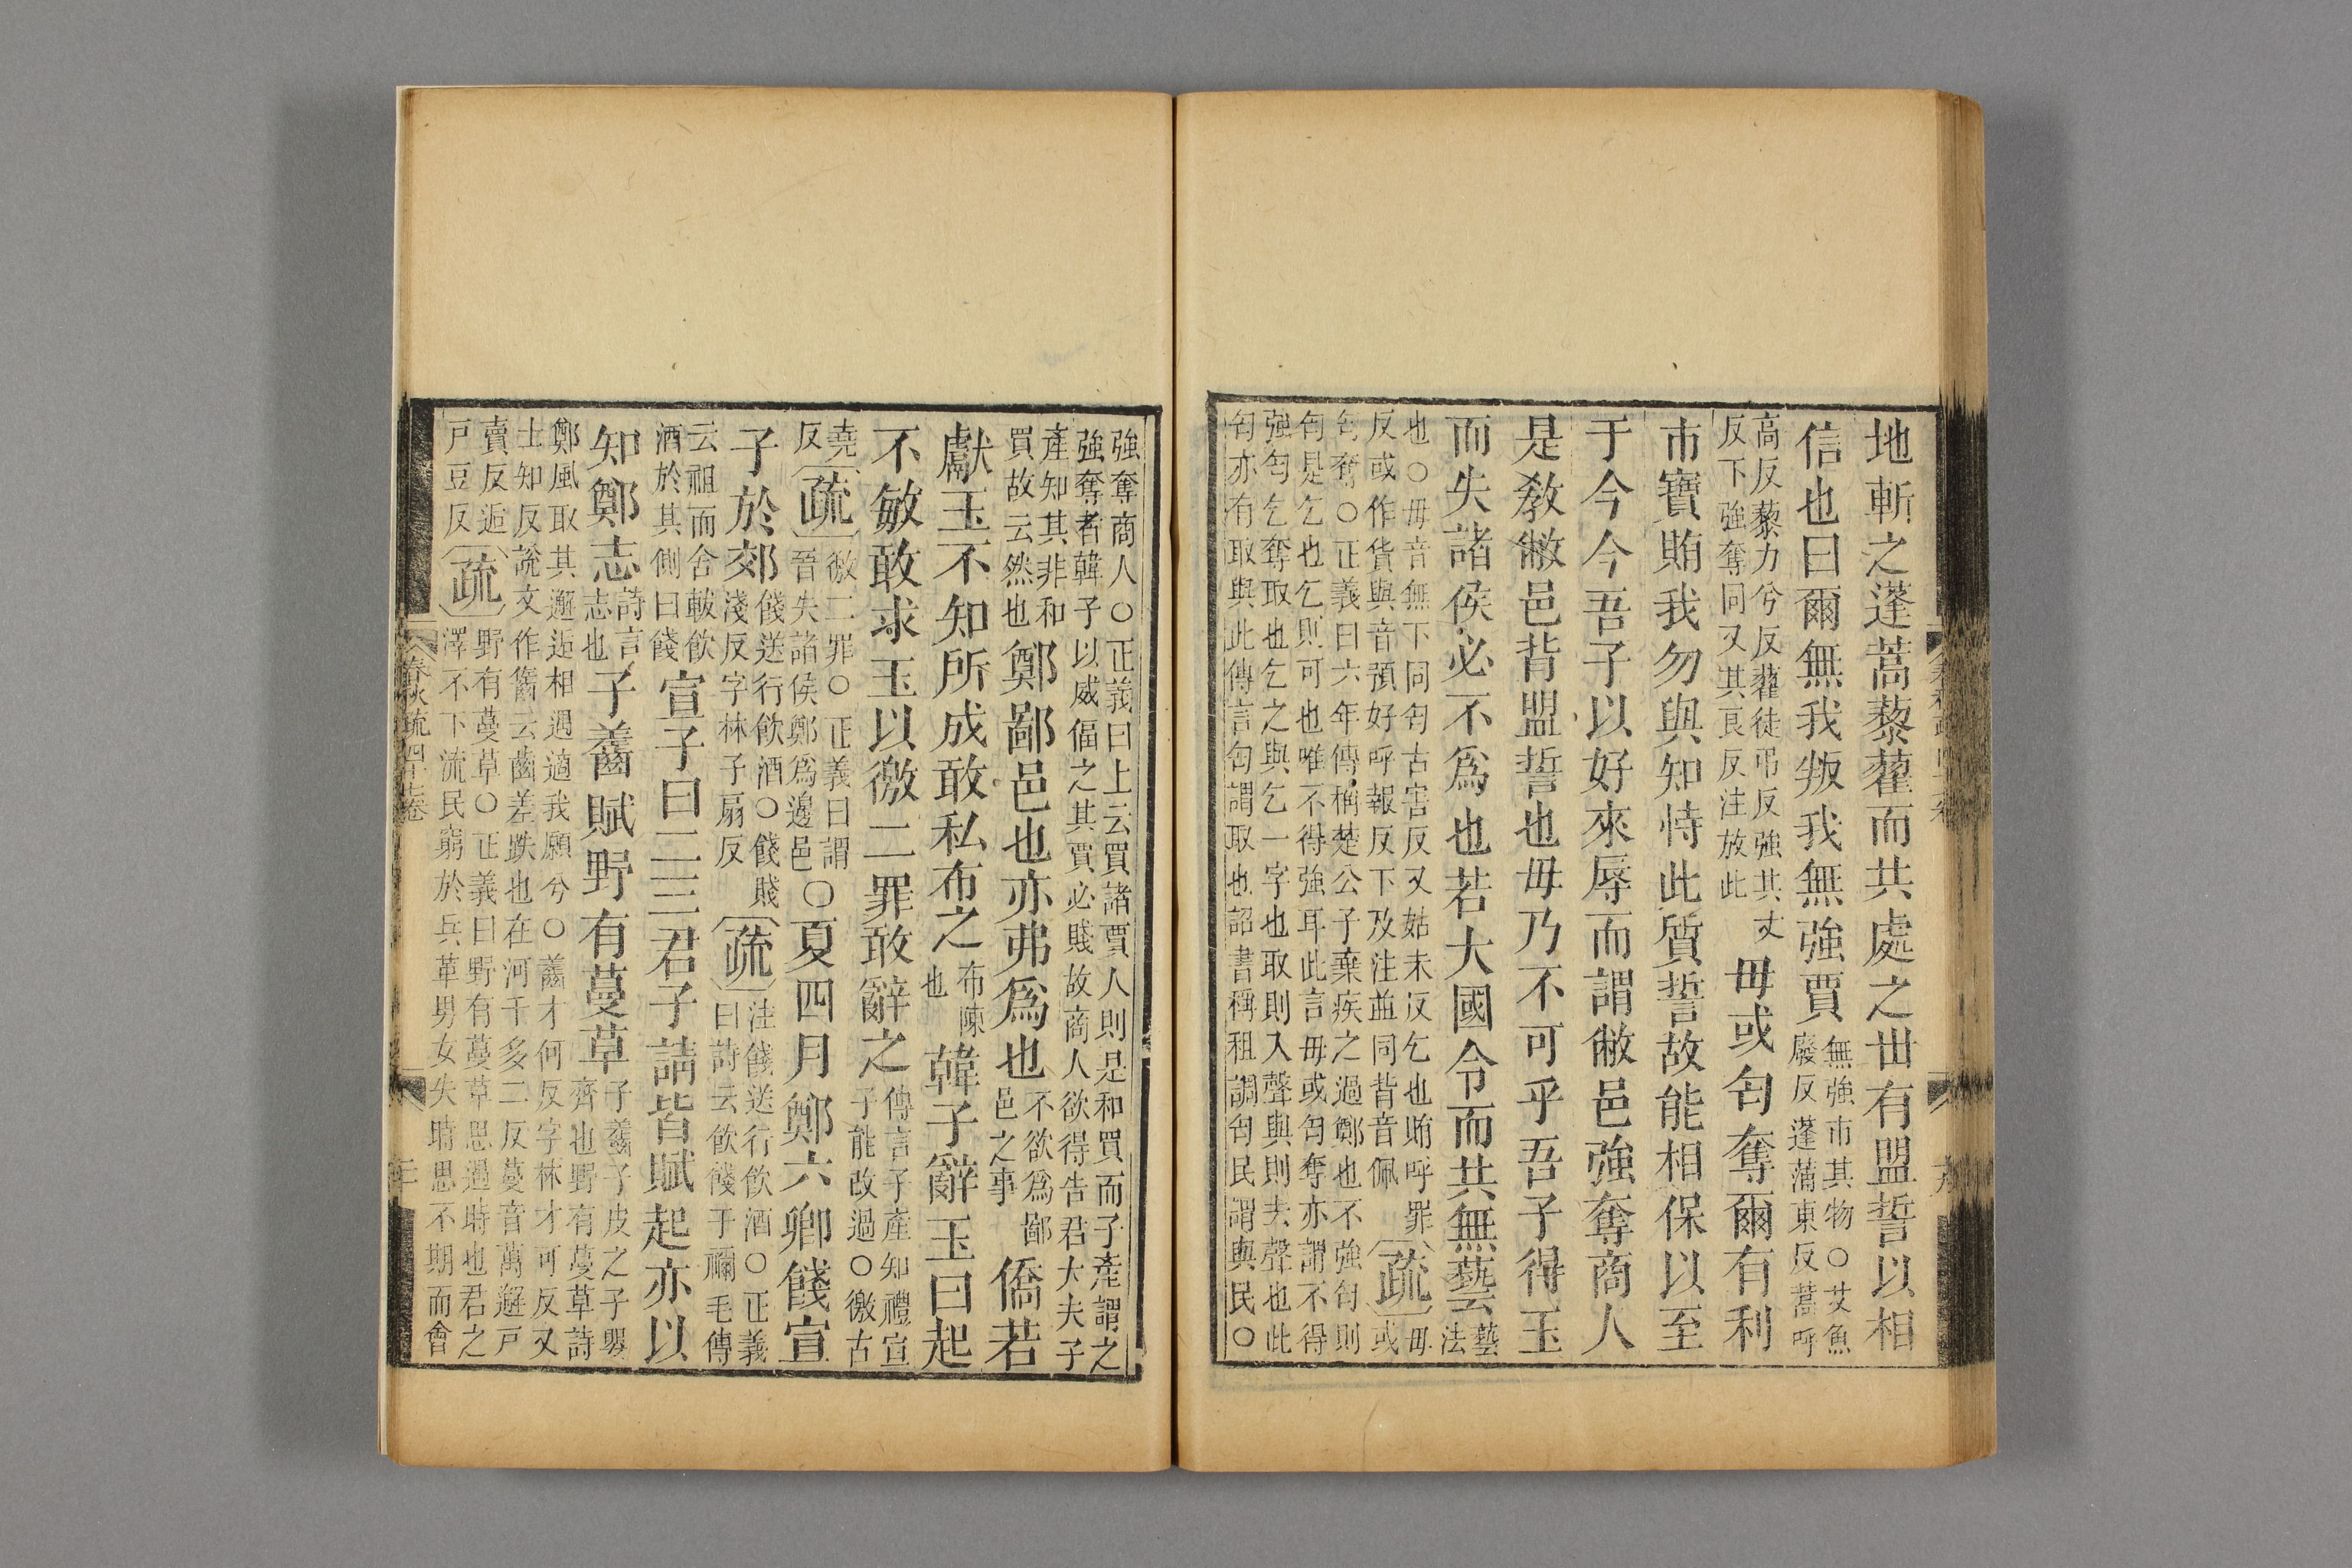 地斬之蓬蒿藜藋而共處之世有盟誓以相
信也曰爾無我叛我無強賈無強市其物○艾魚
廢反蓬蒲東反蒿呼
高反藜力兮反藋徒弔反強其丈
反下強奪同又其良反注放此
毋或匄奪爾有利
市寶賄我勿與知恃此質誓故能相保以至
于今今吾子以好來辱而謂敝邑強奪商人
是敎敝邑背盟誓也毋乃不可乎吾子得玉
而失諸侯必不爲也若大國令而共無藝藝
法
也○毋音無下同匄古害反又姑未反乞也賄呼罪
反或作貨與音預好呼報反下及注並同背音佩
疏毋
或
匄奪○正義曰六年傳稱楚公子棄疾之過鄭也不強匄則
匄是乞也乞則可也唯不得強耳此言毋或匄奪亦謂不得
強匄乞奪取也乞之與乞一字也取則入聲與則去聲也此
匄亦有取與此傳言匄謂取也詔書稱租調匄民謂與民○
強奪商人○正義曰上云買諸賈人則是和買而子產謂之
強奪者韓子以威偪之其賈必賤故商人欲得告君大夫子
產知其非和
買故云然也
鄭鄙邑也亦弗爲也不欲爲鄙
邑之事
僑若
獻玉不知所成敢私布之布陳
也
韓子辭玉曰起
不敏敢求玉以徼二罪敢辭之傳言子產知禮宣
子能改過○徼古
堯
反
疏徼二罪○正義曰謂
晉失諸侯鄭爲邊邑
○夏四月鄭六卿餞宣
子於郊餞送行飲酒○餞賤
淺反字林子扇反
疏注餞送行飲酒○正義
曰詩云飲餞于禰毛傳
云祖而舍軷飲
酒於其側曰餞
宣子曰二三君子請皆賦起亦以
知鄭志詩言
志也
子齹賦野有蔓草子齹子皮之子嬰
齊也野有蔓草詩
鄭風取其邂逅相遇適我願兮○齹才何反字林才可反又
士知反說文作𪘓云齒差跌也在河千多二反蔓音萬邂戸
賣反逅
戸豆反
疏野有蔓草○正義曰野有蔓草思遇時也君之
澤不下流民窮於兵革男女失時思不期而會
春秋疏四十七卷